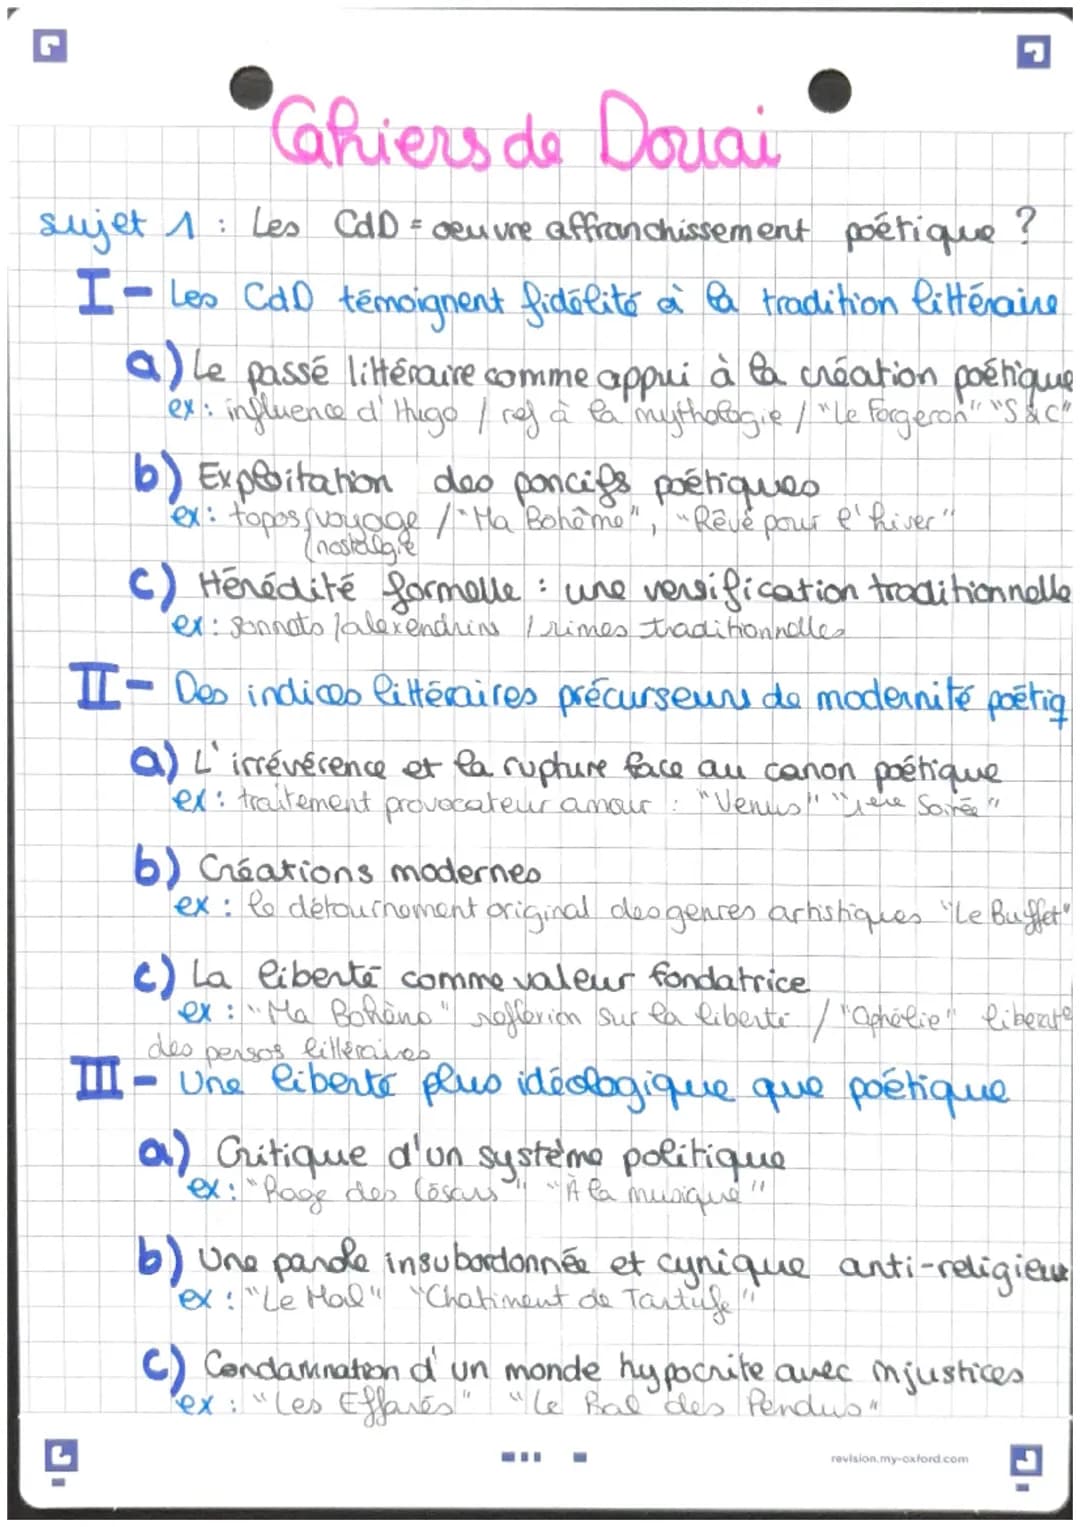 Cahiers de Douai
sujet 1 : Les CdD = oeuvre affranchissement poétique ?
I - Les CdD témoignent fidélité à la tradition littéraire
a) Le passé littéraire comme appui à la création poétique
ex : influence d'Hugo / ref à la mythologie / "Le Forgeron" "S&C"
b) Exploitation des poncifs poétiques
ex : topos voyage / "Ma Bohême", "Rêvé pour l'hiver"
(nostalgie
c) Hérédité formelle : une versification traditionnelle
ex : sonnets / alexendrins / rimes traditionnelles
II - Des indices littéraires précurseurs de modernité poétiq
a) L'irrévérence et la rupture face au canon poétique
ex : traitement provocateur amour : "Venus" "1ère Soirée"
b) Créations modernes
ex : le détournement original des genres artistiques "Le Buffet"
c) La liberté comme valeur fondatrice
ex : "Ma Bohème" reflexion sur la liberté / "Ophélie" liberté
des persos littéraires
III - Une liberté plus idéologique que poétique
a) Critique d'un système politique
ex : "Rage des Césars" "À la musique"
b) Une parole insubordonnée et cynique anti-religieux
ex : "Le Mal" "Chatiment de Tartufe"
c) Condamnation d'un monde hypocrite avec injustices
ex : "Les Effarés" "Le Bal des Pendus"
revision.my-oxford.com